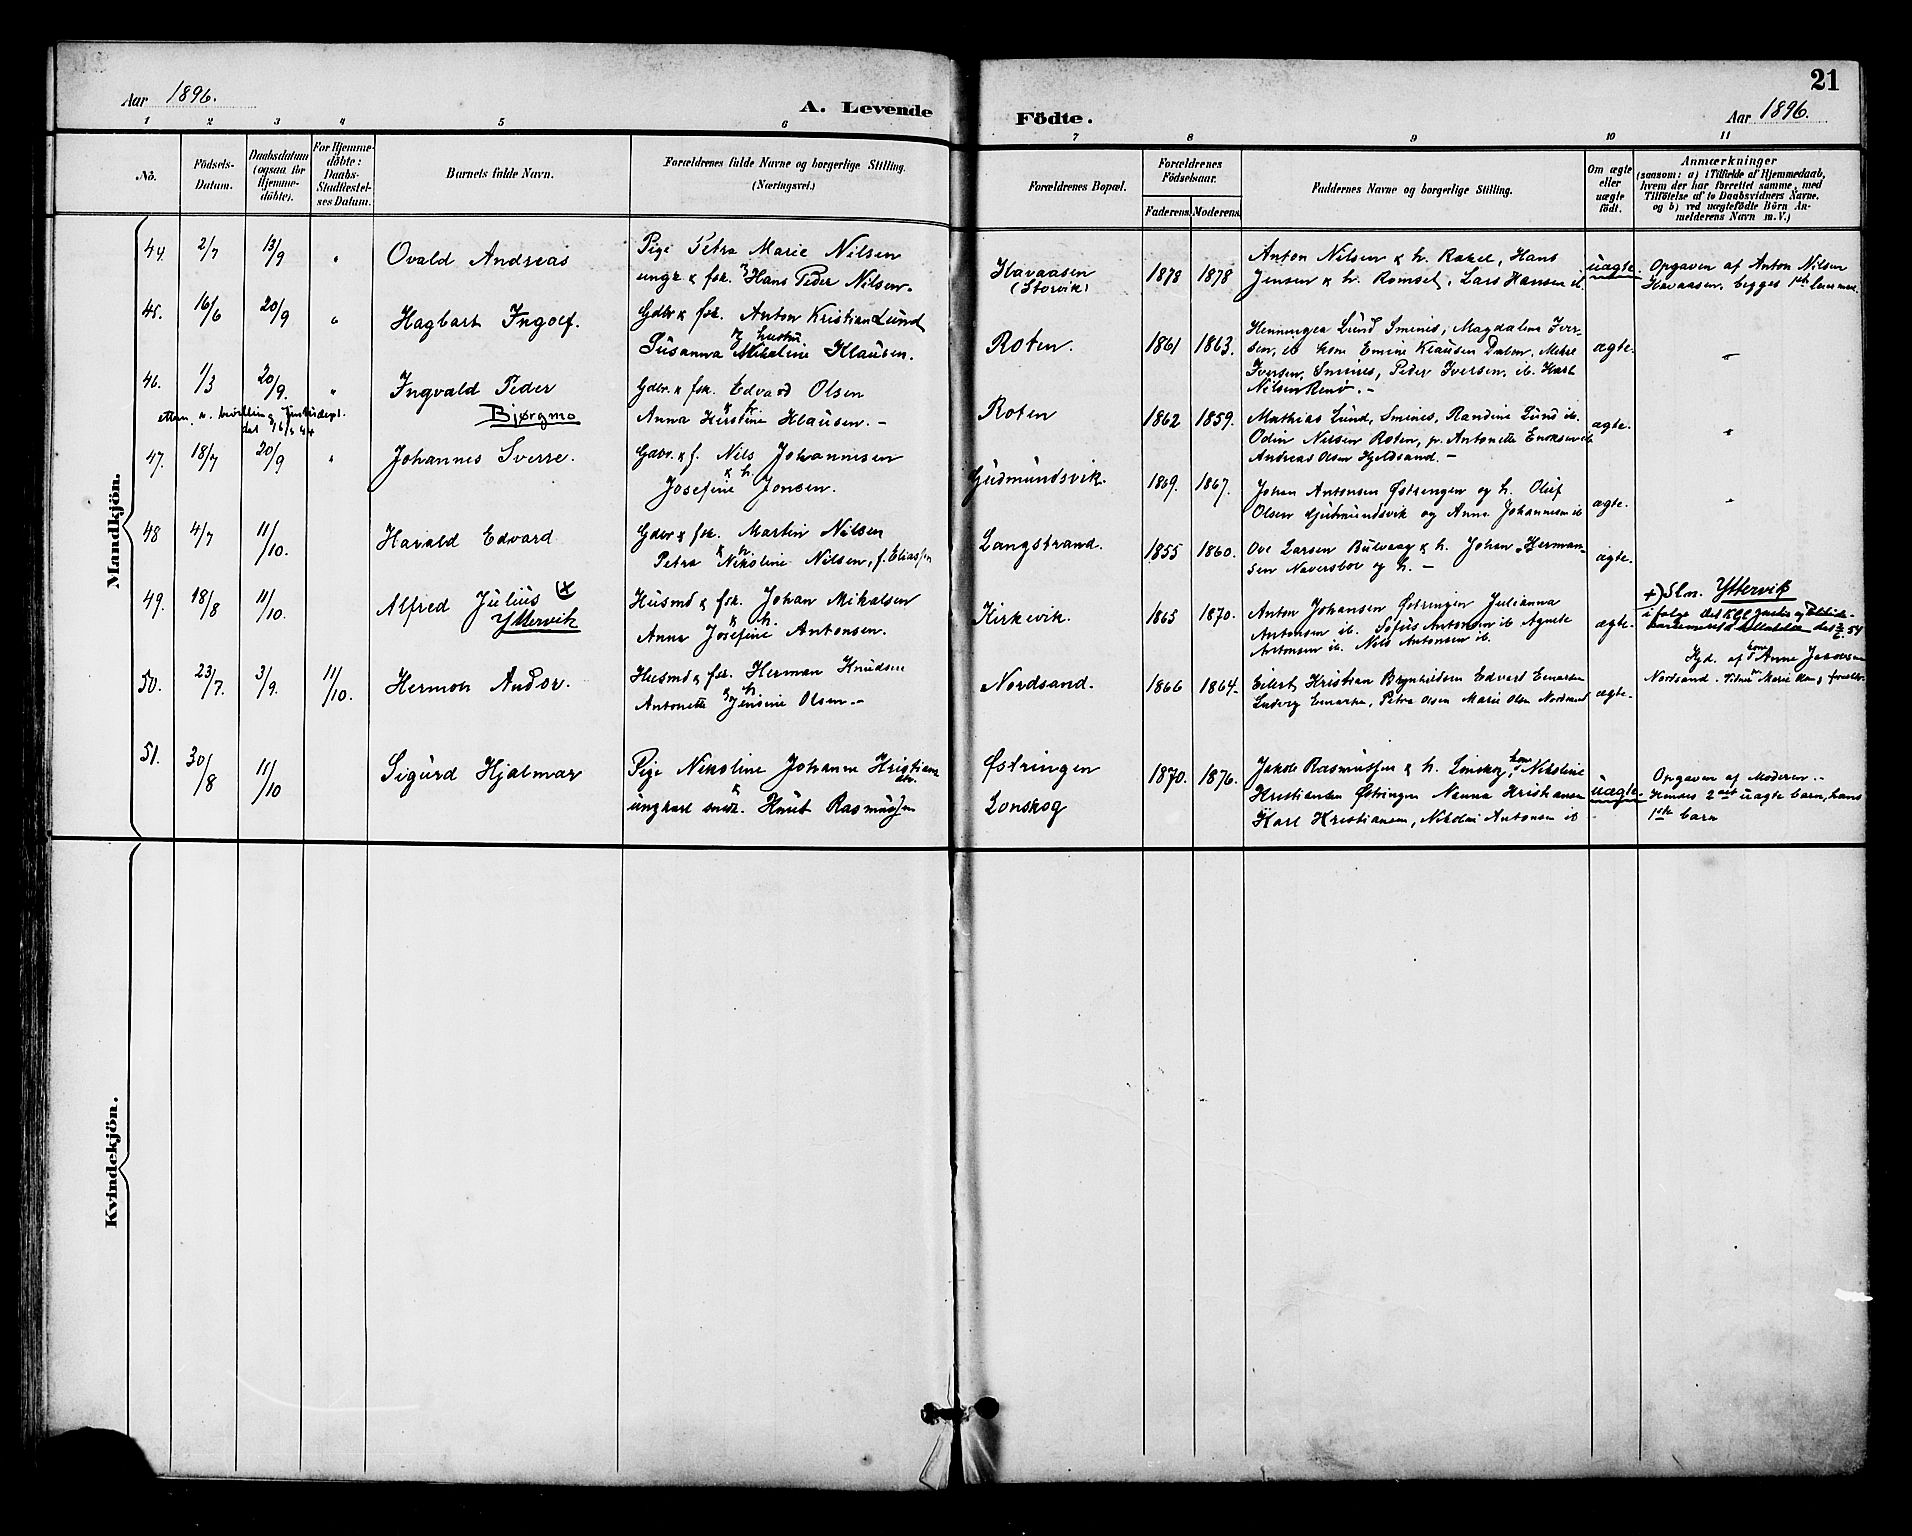 21
Aar 1896.
A. Levende
Födte.
Aar 1896.
1 2 3 4 5 6 7 8 9 10 11
No.
Födsels-
Datum.
Daabsdatum
(ogsaa for
Hjemme-
döbte).
For Hjemme-
döbte:
Daabs-
Stadfæstel-
ses Datum.
Barnets fulde Navn.
Forældrenes fulde Navne og borgerlige Stilling.
(Næringsvei.)
Forældrenes Bopæl.
Forældrenes
Födselsaar.
Faderens. Moderens.
Faddernes Navne og borgerlige Stilling.
Om ægte
eller
uægte
födt.
Anmærkninger
(saasom: a) i Tilfælde af Hjemmedaab,
hvem der har forrettet samme, med
Tilföielse af to Daabsvidners Navne,
og b) ved uægtefödte Börn An-
melderens Navn m. V.)
Mandkjön.
44. 2/7 13/9 " Ovald Andreas
Pige Petra Marie Nilsen
ungk & fsk. Hans Peder Nilsen.
Havaasen
(Storvik)
1878 1878
Anton Nilsen & h. Rakel, Hans
Jensen & h. Romset, Lars Hansen ib
uægte.
Opgaven af Anton Nilsen
Havaasen, begges 1ste
45. 16/6 20/9 " Hagbart Ingolf.
Gdbr & fsk. Anton Kristian Lund
og hustru
Susanna Nikoline Klausen.
Roten.
1861 1863.
Henningea Lund Smines, Magdalena Iver-
sen, ib kone Emine Klausen Dalen, Mekel
Iversen, Smines, Peder Iversen, ib. Karl
Nilsen Renø. -
ægte. "
46. 1/3 20/9. " Ingvald Peder
Bjørgmo
Gdbr. & fsk. Edvard Olsen
& h.
Anna Kirstine Klausen. -
Roten
1862 1859.
Mathias Lund, Smines, Randine Lund ib.
Odin Nilsen Roten, p. Antonette Enoksen ib
Andreas Olsen Hjeldsand. -
ægte. "
47. 18/7 20/9 " Johannes Sverre.
Gdbr. & f. Nils Johannesen
& h.
Josefine Jonsen.
Gudmundsvik.
1869. 1867.
Johan Antonsen Østringen og h. Oluf
Olsen Gudmundsvik og Anna Johannesen ib
ægte. "
48 4/7 11/10. Harald Edvard
Gdbr & fsk. Martin Nilsen
& h.
Petra Nikoline Nilsen, f. Eliassen
Langstrand.
1855 1860.
Ove Larsen Bulvaag & h. Johan Herman-
sen Naversbor og h. -
ægte.
49. 18/8 11/10. Alfred Julius +)
Yttervik
Husmd & fsk. Johan Mikalsen
& h.
Anna Josefine Antonsen.
Kirkevik.
1865 1870.
Anton Johansen Østringen Julianna
Antonsen ib. Sofus Antonsen ib Agnete
Antonsen ib. Nils Antonsen ib.
ægte.
+) Sln. Yttervik
i følge det Kgl Justis og Politi-
50. 23/7. 3/9. 11/10. Herman Andor.
Husmd & fsk. Herman Knudsen
og h
Antonette Jensine Olsen. -
Nordsand.
1866 1864.
Eilert Kristian Brynhildsen Edvard Einarsen
Ludvig Einarsen, Petra Olsen Marie Olsen Nordsand
ægte.
Hjd. af kone Anne Jakobsen
Nordsand.
51. 30/8 11/10 Sigurd Hjalmar
Pige Nikoline Johanne Kristian-
sen
&
ungkarl smed. Knut Rasmussen
Østringen
Lonskog
1870. 1876.
Jakob Rasmussen & h. Lonskog, kone Nikoline
Kristiansen Østringen Nanna Kristiansen
Karl Kristiansen, Nikolai Antonsen ib
uægte.
Opgaven af Moderen. -
Hendes 2det uægte barn, hans
1ste barn
Kvindekjön.